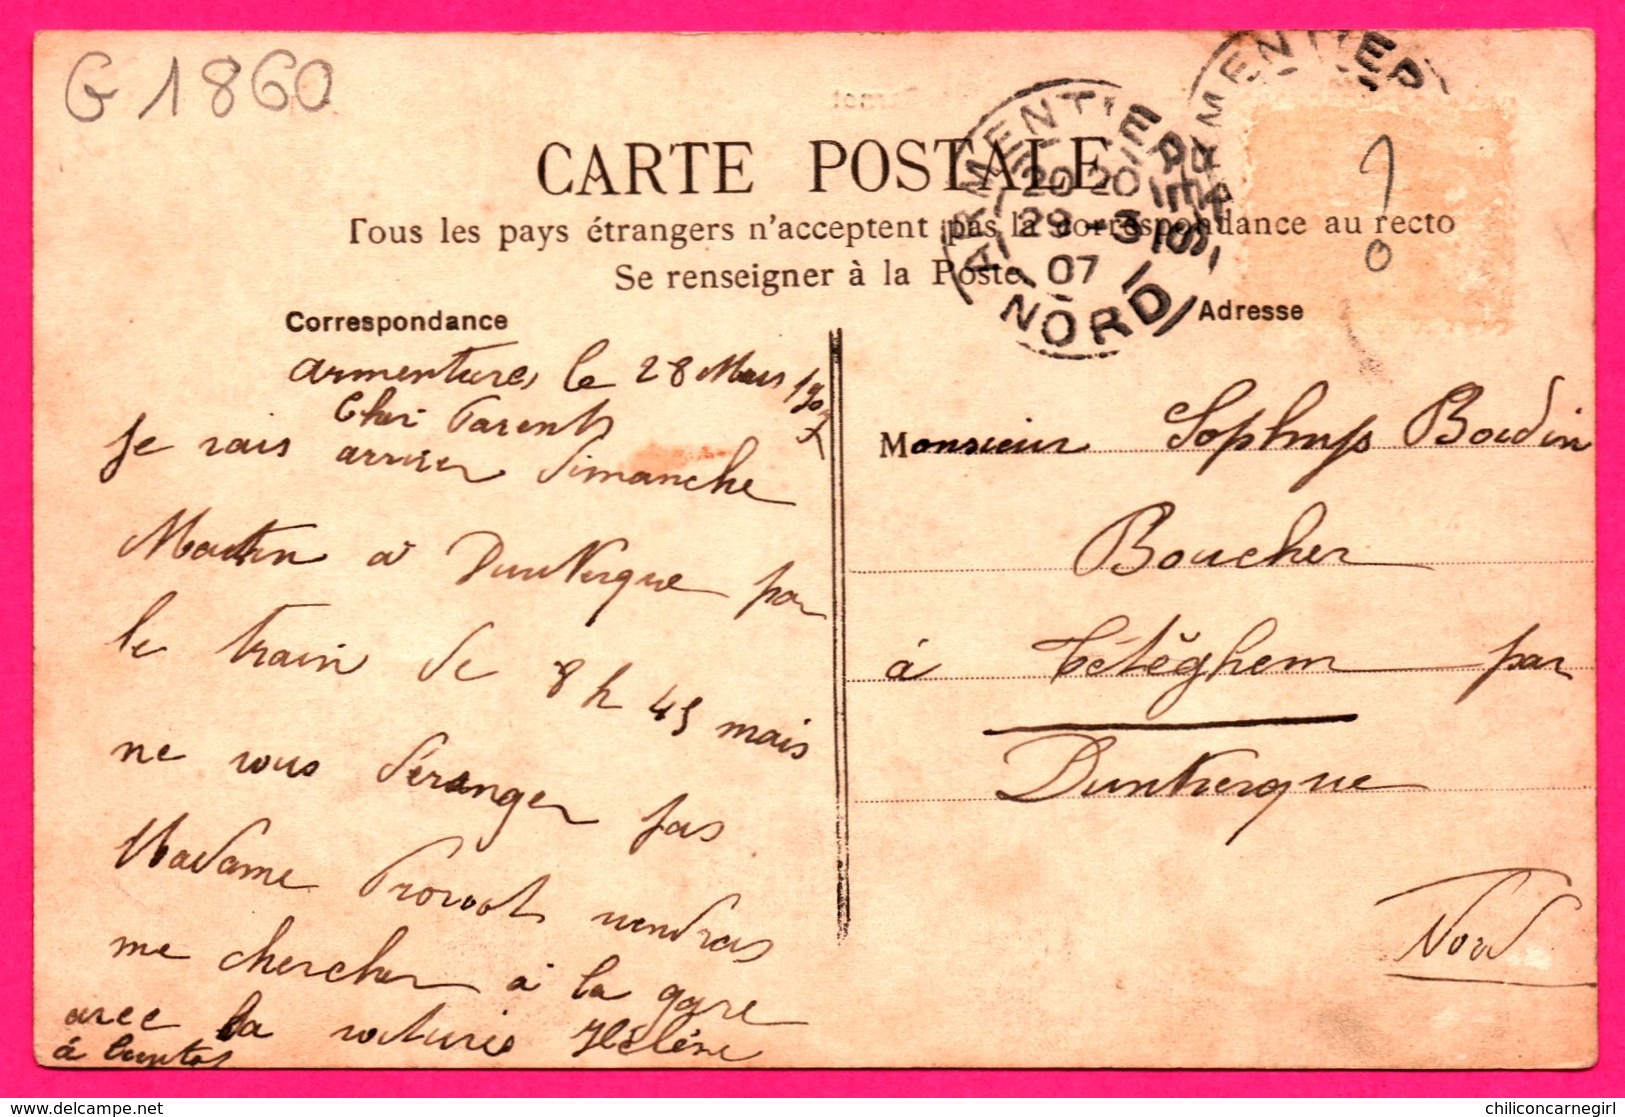 G 1860
CARTE POSTALE
Tous les pays étrangers n'acceptent pas la correspondance au recto
Se renseigner à la Poste
ARMENTIERES
20 20
29 - 3
07
NORD
Correspondance
Adresse
armentieres le 28 Mars 1907
Cher Parents
Je vais arriver Dimanche
Matin à Dunkerque par
le train de 8 h 45 mais
ne vous déranger pas
Madame Provost viendras
me chercher à la gare
avec la voiture Hélène
à
Monsieur Bordin
Boucher
à Tétéghem par
Dunkerque
Nord
chiliconcarnegirl